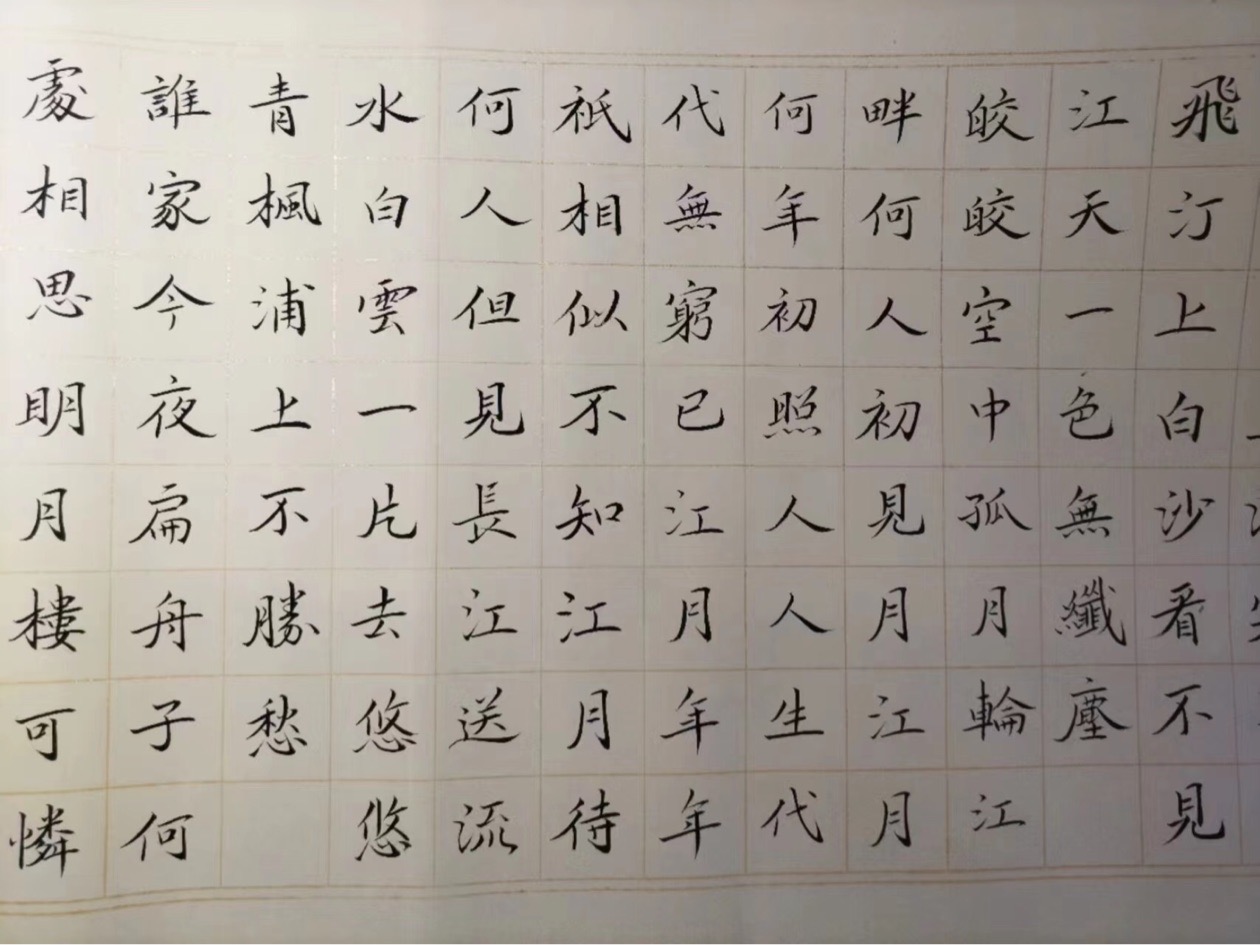 飛汀上白沙看不見
江天一色無纖塵
皎皎空中孤月輪江
畔何人初見月江月
何年初照人人生代
代無窮已江月年年
祇相似不知江月待
何人但見長江送流
水白雲一片去悠悠
青楓浦上不勝愁
誰家今夜扁舟子何
處相思明月樓可憐